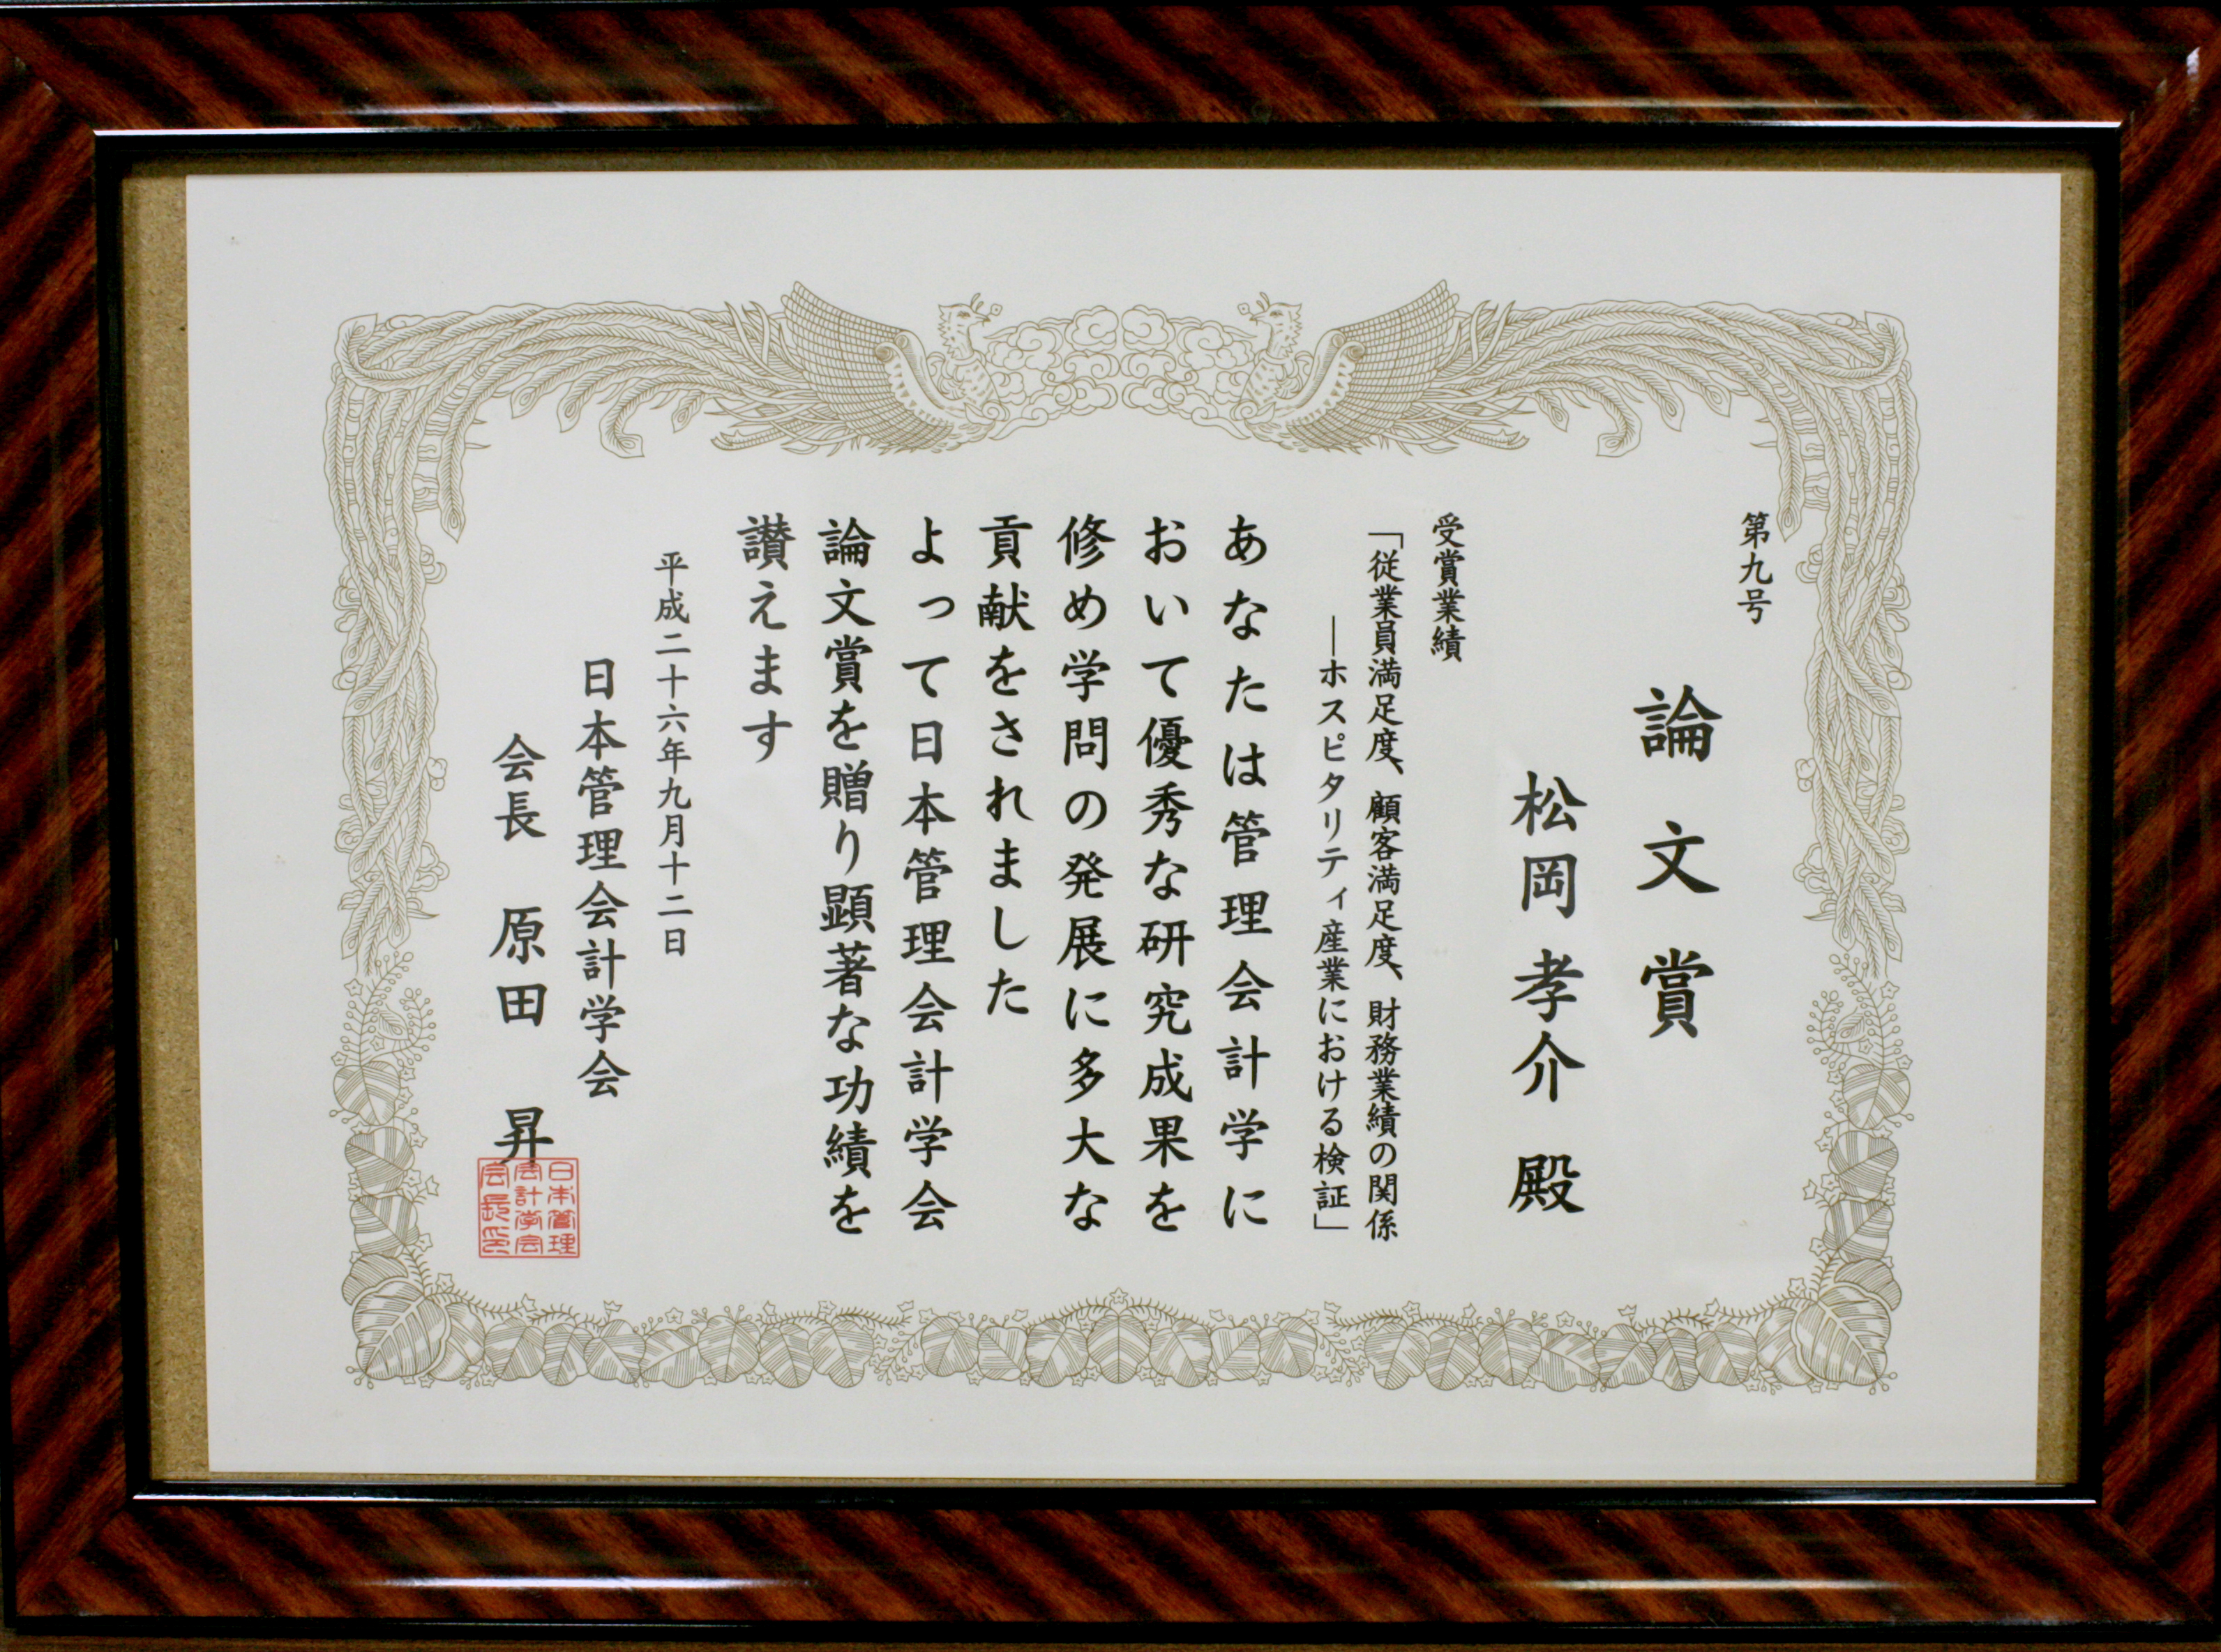 第九号
論文賞
松岡孝介 殿
受賞業績
「従業員満足度、顧客満足度、財務業績の関係
―ホスピタリティ産業における検証」
あなたは管理会計学に
おいて優秀な研究成果を
修め学問の発展に多大な
貢献をされました
よって日本管理会計学会
論文賞を贈り顕著な功績を
讃えます
平成二十六年九月十二日
日本管理会計学会
会長 原田 昇
日本管理
会計学会
会長印